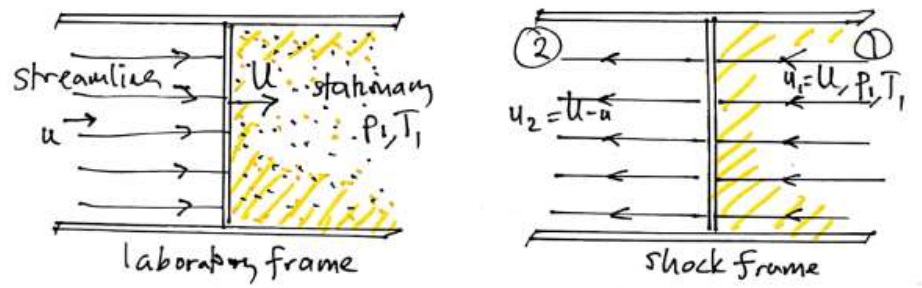 streamline
u
U
stationary
P₁, T₁
laboratory frame
②
u₂ = U-u
①
u₁ = U, P₁, T₁
shock frame